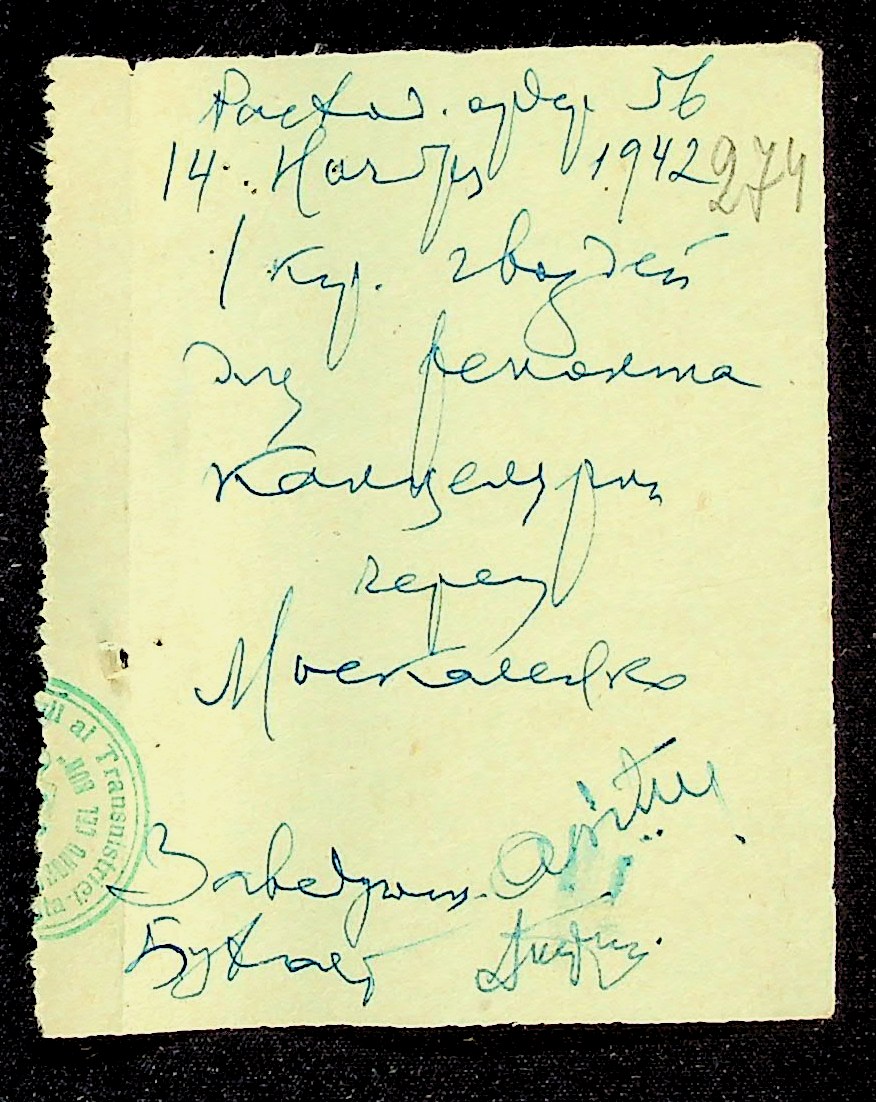 Расход. ордер 56
14 Ноября 1942
274
1 кг. гвоздей
для ремонта
канцелярии
через
Москаленко
Заведующ.
Бухгалт
al Transnistriei